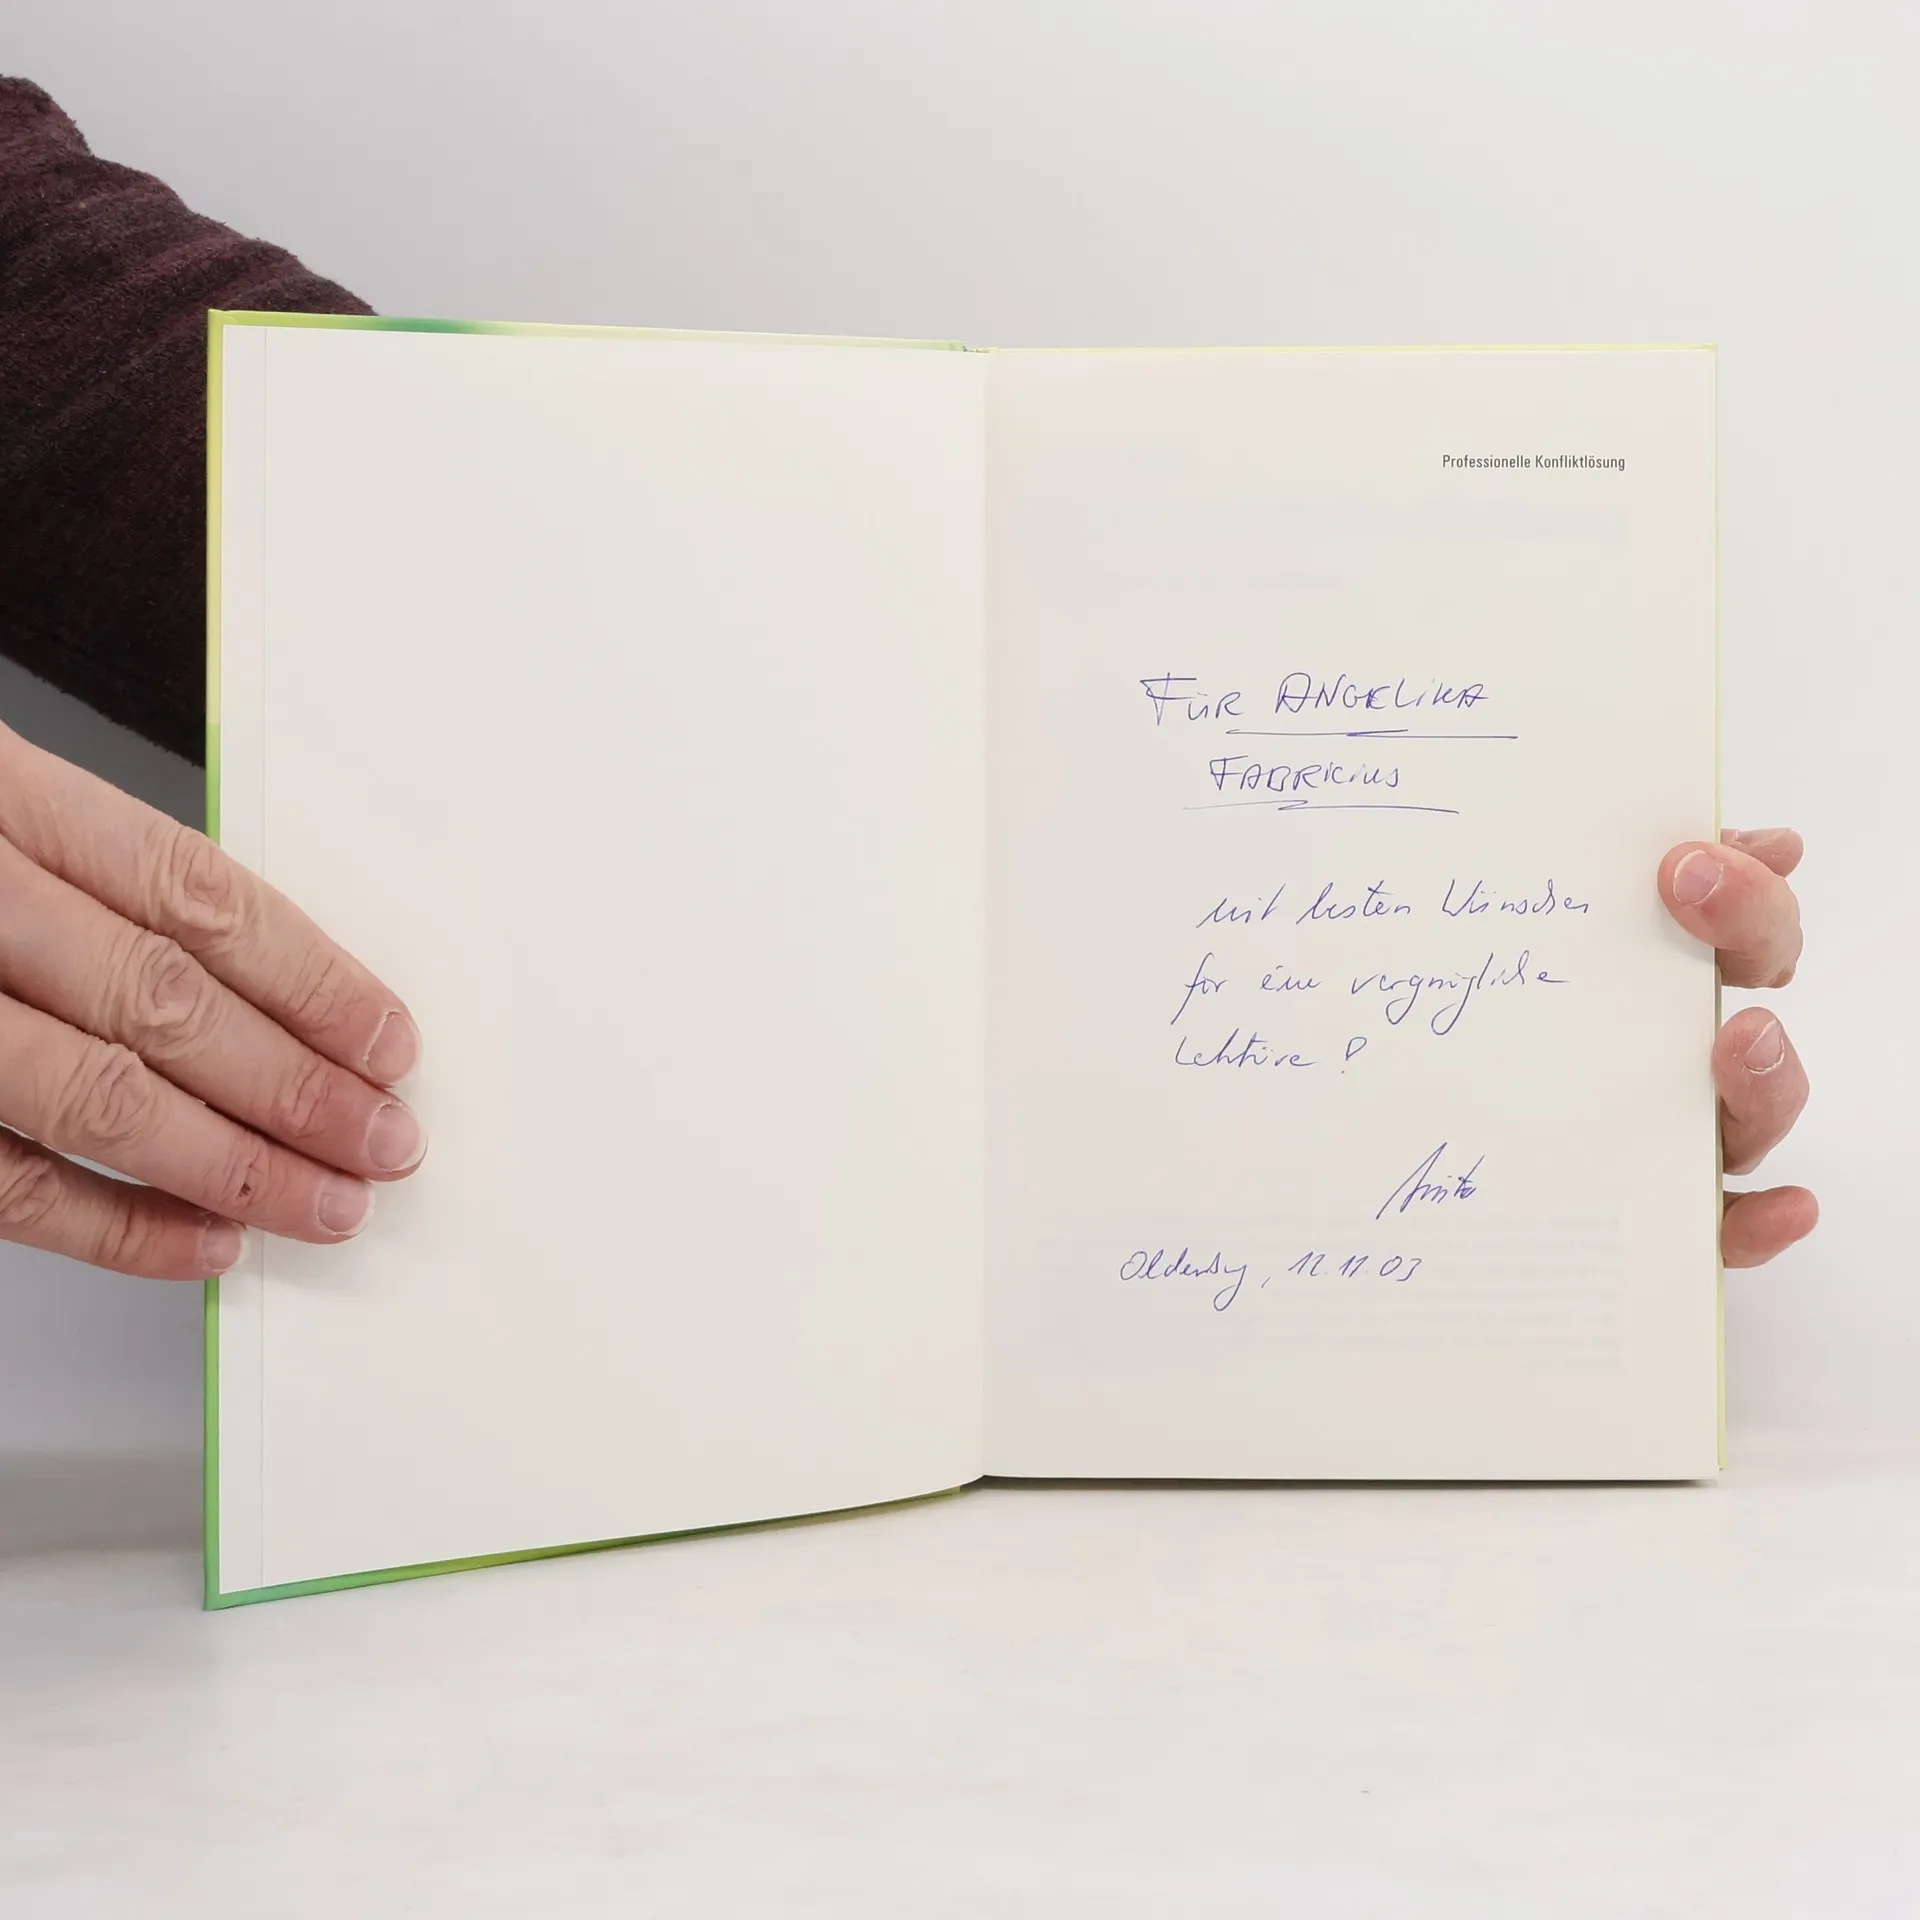 Professionelle Konfliktlösung
FÜR ANGELIKA
FABRICIUS
mit besten Wünschen
für eine vergnügliche
Lektüre!
Oldenburg, 12.11.03